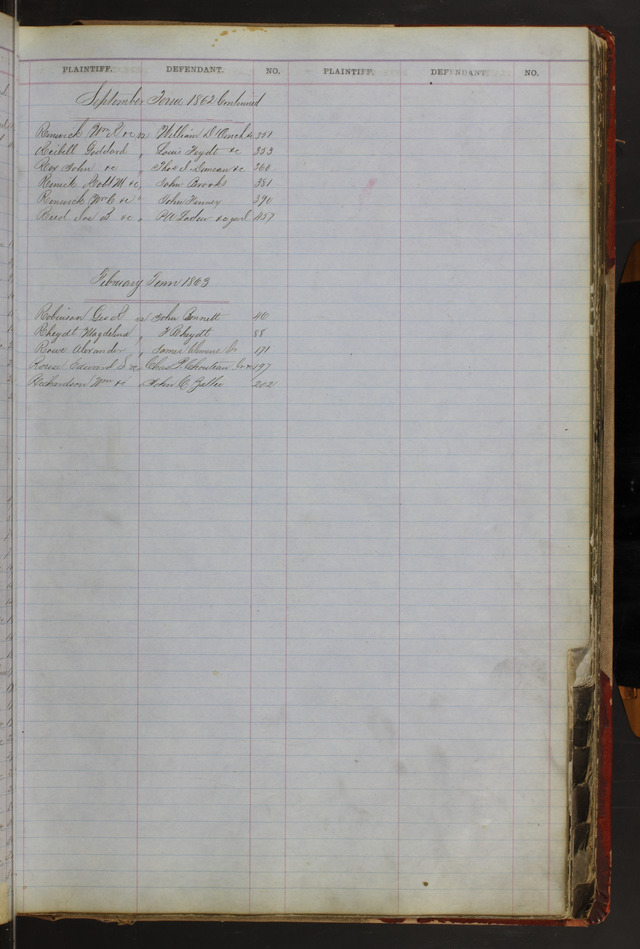 PLAINTIFF. DEFENDANT. NO. PLAINTIFF. DEFENDANT. NO.
September Term 1862 Continued
Renwick Wm R &c vs William D 351
Reibell Goddard " Louis Feydt &c 353
Roy John &c " Thos J. Duncan &c 360
Renick Robt M &c " John Brooks 381
Renwick Wm C &c " John Finney 390
Reed Jas &c " 457
February Term 1863
Robinson Geo R vs John Bennett 46
Rheydt Magdelena " F Rheydt 88
Rowe Alexander " James Clemens Jr 171
Rowse Edward S &c " Chas P. Chouteau &c 197
Richardson Wm &c " John C 202